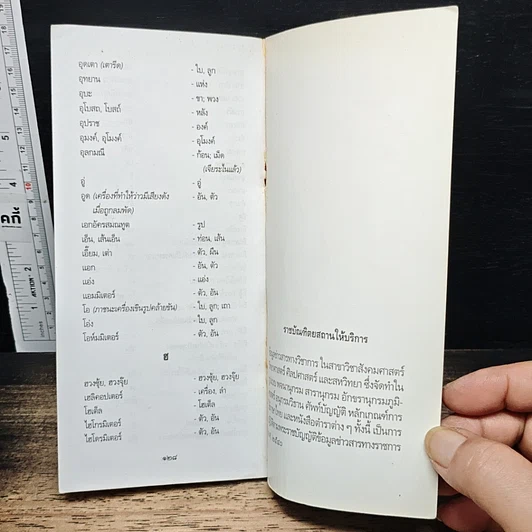 อุดเตา (เตารีด) - ใบ, ลูก
อุทยาน - แห่ง
อุบะ - ขา; พวง
อุโบสถ, โบสถ์ - หลัง
อุปราช - องค์
อุมงค์, อุโมงค์ - อุโมงค์
อุลกมณี - ก้อน; เม็ด
(เจียระไนแล้ว)
อู่ - อู่
อูด (เครื่องที่ทำให้ว่าวมีเสียงดัง - อัน, ตัว
เมื่อถูกลมพัด)
เอกอัครสมณทูต - รูป
เอ็น, เส้นเอ็น - ท่อน, เส้น
เอี๊ยม, เต่า - ตัว, ผืน
แอก - อัน, ตัว
แอ่ง - แอ่ง
แอมมิเตอร์ - ตัว, อัน
โอ (ภาชนะเครื่องเขินรูปคล้ายขัน) - ใบ, ลูก; เถา
โอ่ง - ใบ, ลูก
โอห์มมิเตอร์ - ตัว, อัน
ฮ
ฮวงซุ้ย, ฮวงจุ๊ย - ฮวงซุ้ย, ฮวงจุ๊ย
เฮลิคอปเตอร์ - เครื่อง, ลำ
โฮเต็ล - โฮเต็ล
ไฮโกรมิเตอร์ - ตัว, อัน
ไฮโดรมิเตอร์ - ตัว, อัน
๑๒๘
ราชบัณฑิตยสถานให้บริการ
ข่าวสารทางวิชาการ ในสาขาวิชาสังคมศาสตร์
ศิลปศาสตร์ และสหวิทยา ซึ่งจัดทำใน
พจนานุกรม สารานุกรม อักขรานุกรมภูมิ-
อนุกรมวิธาน ศัพท์บัญญัติ หลักเกณฑ์การ
ไทย และหนังสือตำราต่าง ๆ ทั้งนี้ เป็นการ
ตามพระราชบัญญัติข้อมูลข่าวสารทางราชการ